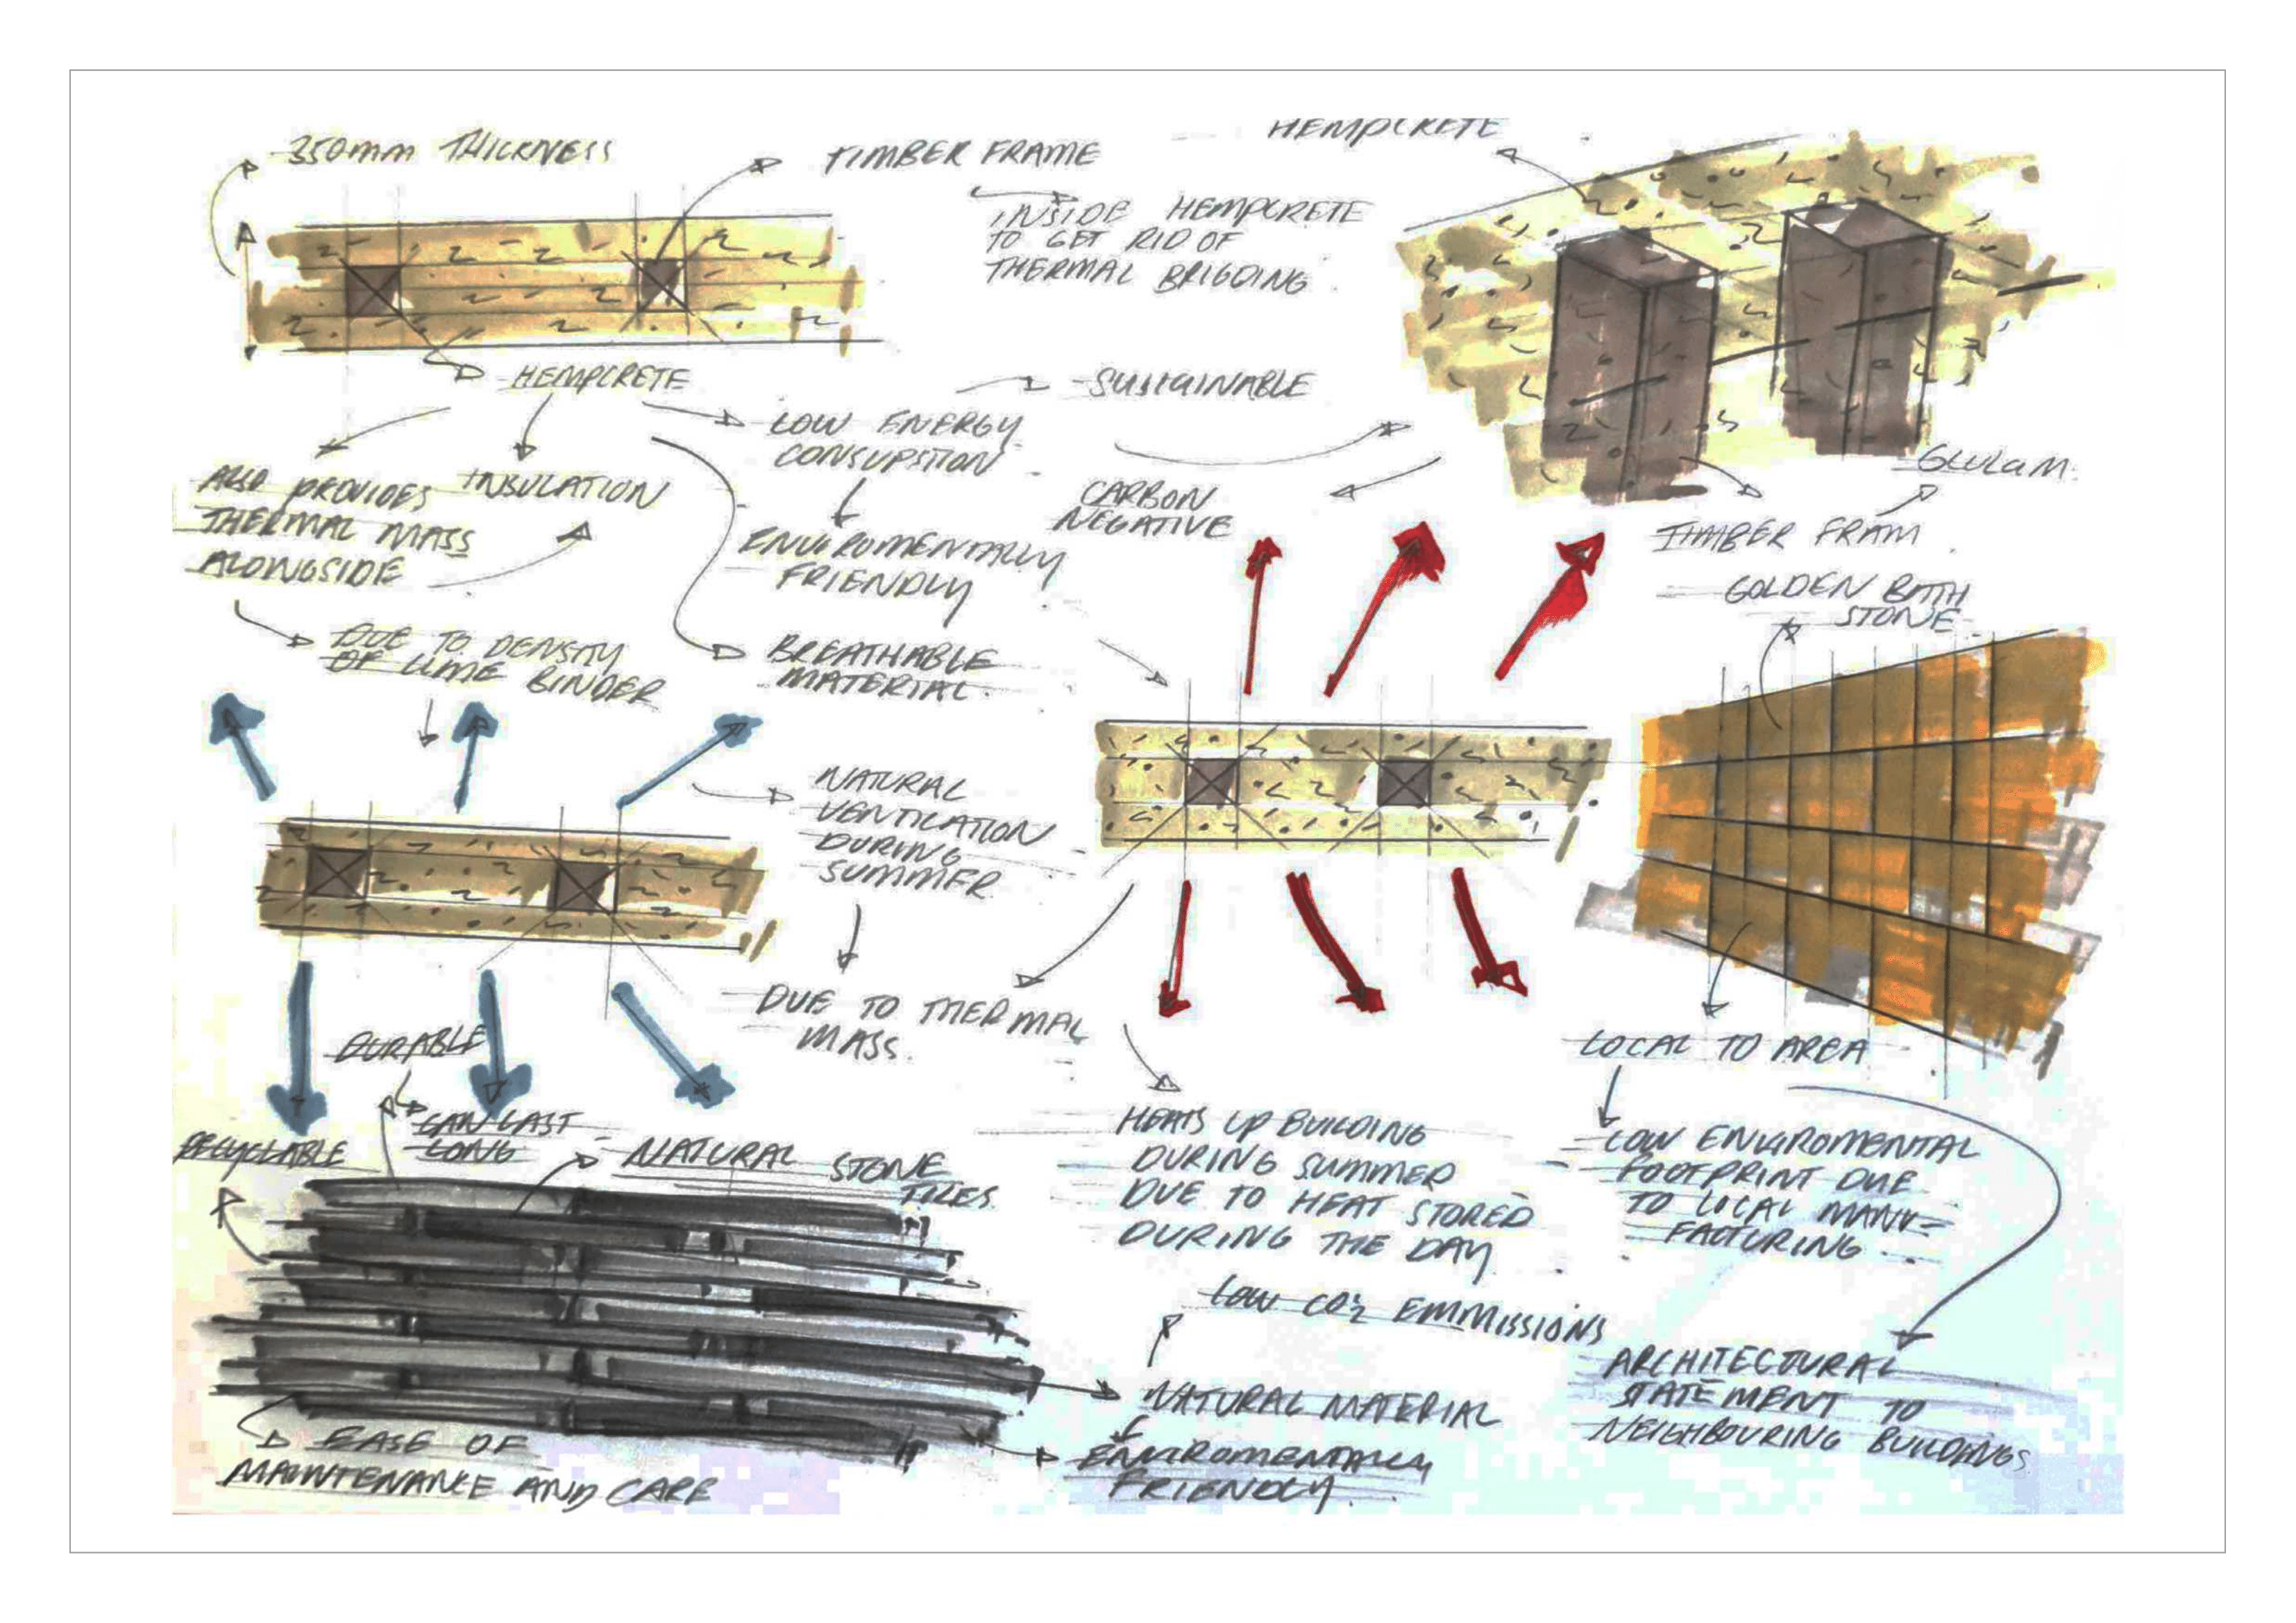 350mm THICKNESS
TIMBER FRAME
INSIDE HEMPCRETE
TO GET RID OF
THERMAL BRIGDING
HEMPCRETE
HEMPCRETE
SUSTAINABLE
LOW ENERGY
CONSUPSTION
ALSO PROVIDES
THERMAL MASS
ALONGSIDE
INSULATION
ENVIROMENTALLY
FRIENDLY
CARBON
NEGATIVE
GLULAM
TIMBER FRAM
GOLDEN BATH
STONE
DUE TO DENSITY
OF LIME BINDER
BREATHABLE
MATERIAL
NATURAL
VENTILATION
DURING
SUMMER
DUE TO THERMAL
MASS
DURABLE
CAN LAST
LONG
RECYCLABLE
NATURAL STONE
TILES
HEATS UP BUILDING
DURING SUMMER
DUE TO HEAT STORED
DURING THE DAY
LOCAL TO AREA
LOW ENVIROMENTAL
FOOTPRINT DUE
TO LOCAL MANU-
FACTURING
LOW CO2 EMMISSIONS
NATURAL MATERIAL
ENVIROMENTALLY
FRIENDLY
ARCHITECTURAL
STATEMENT TO
NEIGHBOURING BUILDINGS
EASE OF
MAINTENANCE AND CARE